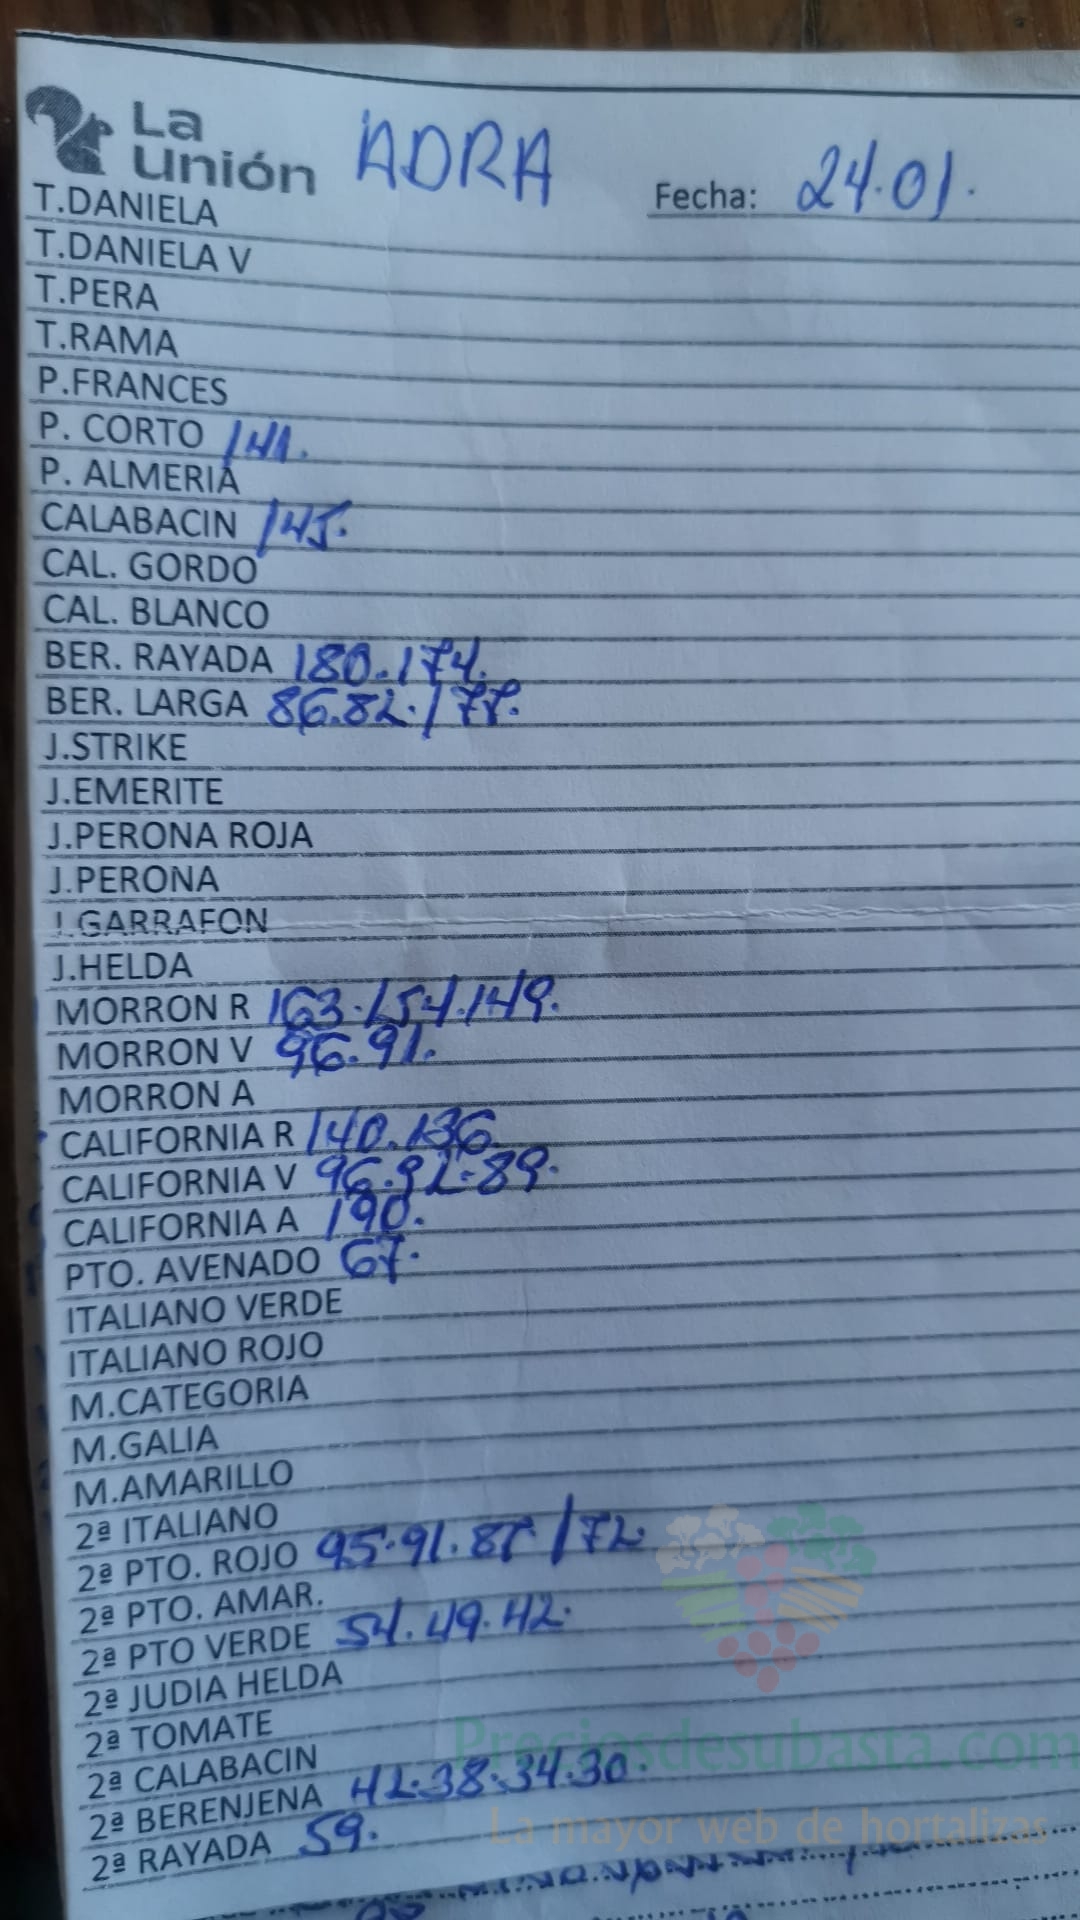 La Unión ADRA Fecha: 24.01.
T.DANIELA
T.DANIELA V
T.PERA
T.RAMA
P.FRANCES
P. CORTO 141.
P. ALMERIA
CALABACIN 145.
CAL. GORDO
CAL. BLANCO
BER. RAYADA 180.174.
BER. LARGA 86.82./77.
J.STRIKE
J.EMERITE
J.PERONA ROJA
J.PERONA
J.GARRAFON
J.HELDA
MORRON R 163.154.149.
MORRON V 96.91.
MORRON A
CALIFORNIA R 140.136.
CALIFORNIA V 96.92.89.
CALIFORNIA A 190.
PTO. AVENADO 67.
ITALIANO VERDE
ITALIANO ROJO
M.CATEGORIA
M.GALIA
M.AMARILLO
2ª ITALIANO
2ª PTO. ROJO 95.91.87/72.
2ª PTO. AMAR.
2ª PTO VERDE 54.49.42.
2ª JUDIA HELDA
2ª TOMATE
2ª CALABACIN
2ª BERENJENA 42.38.34.30.
2ª RAYADA 59.
Preciosdesubasta.com
La mayor web de hortalizas